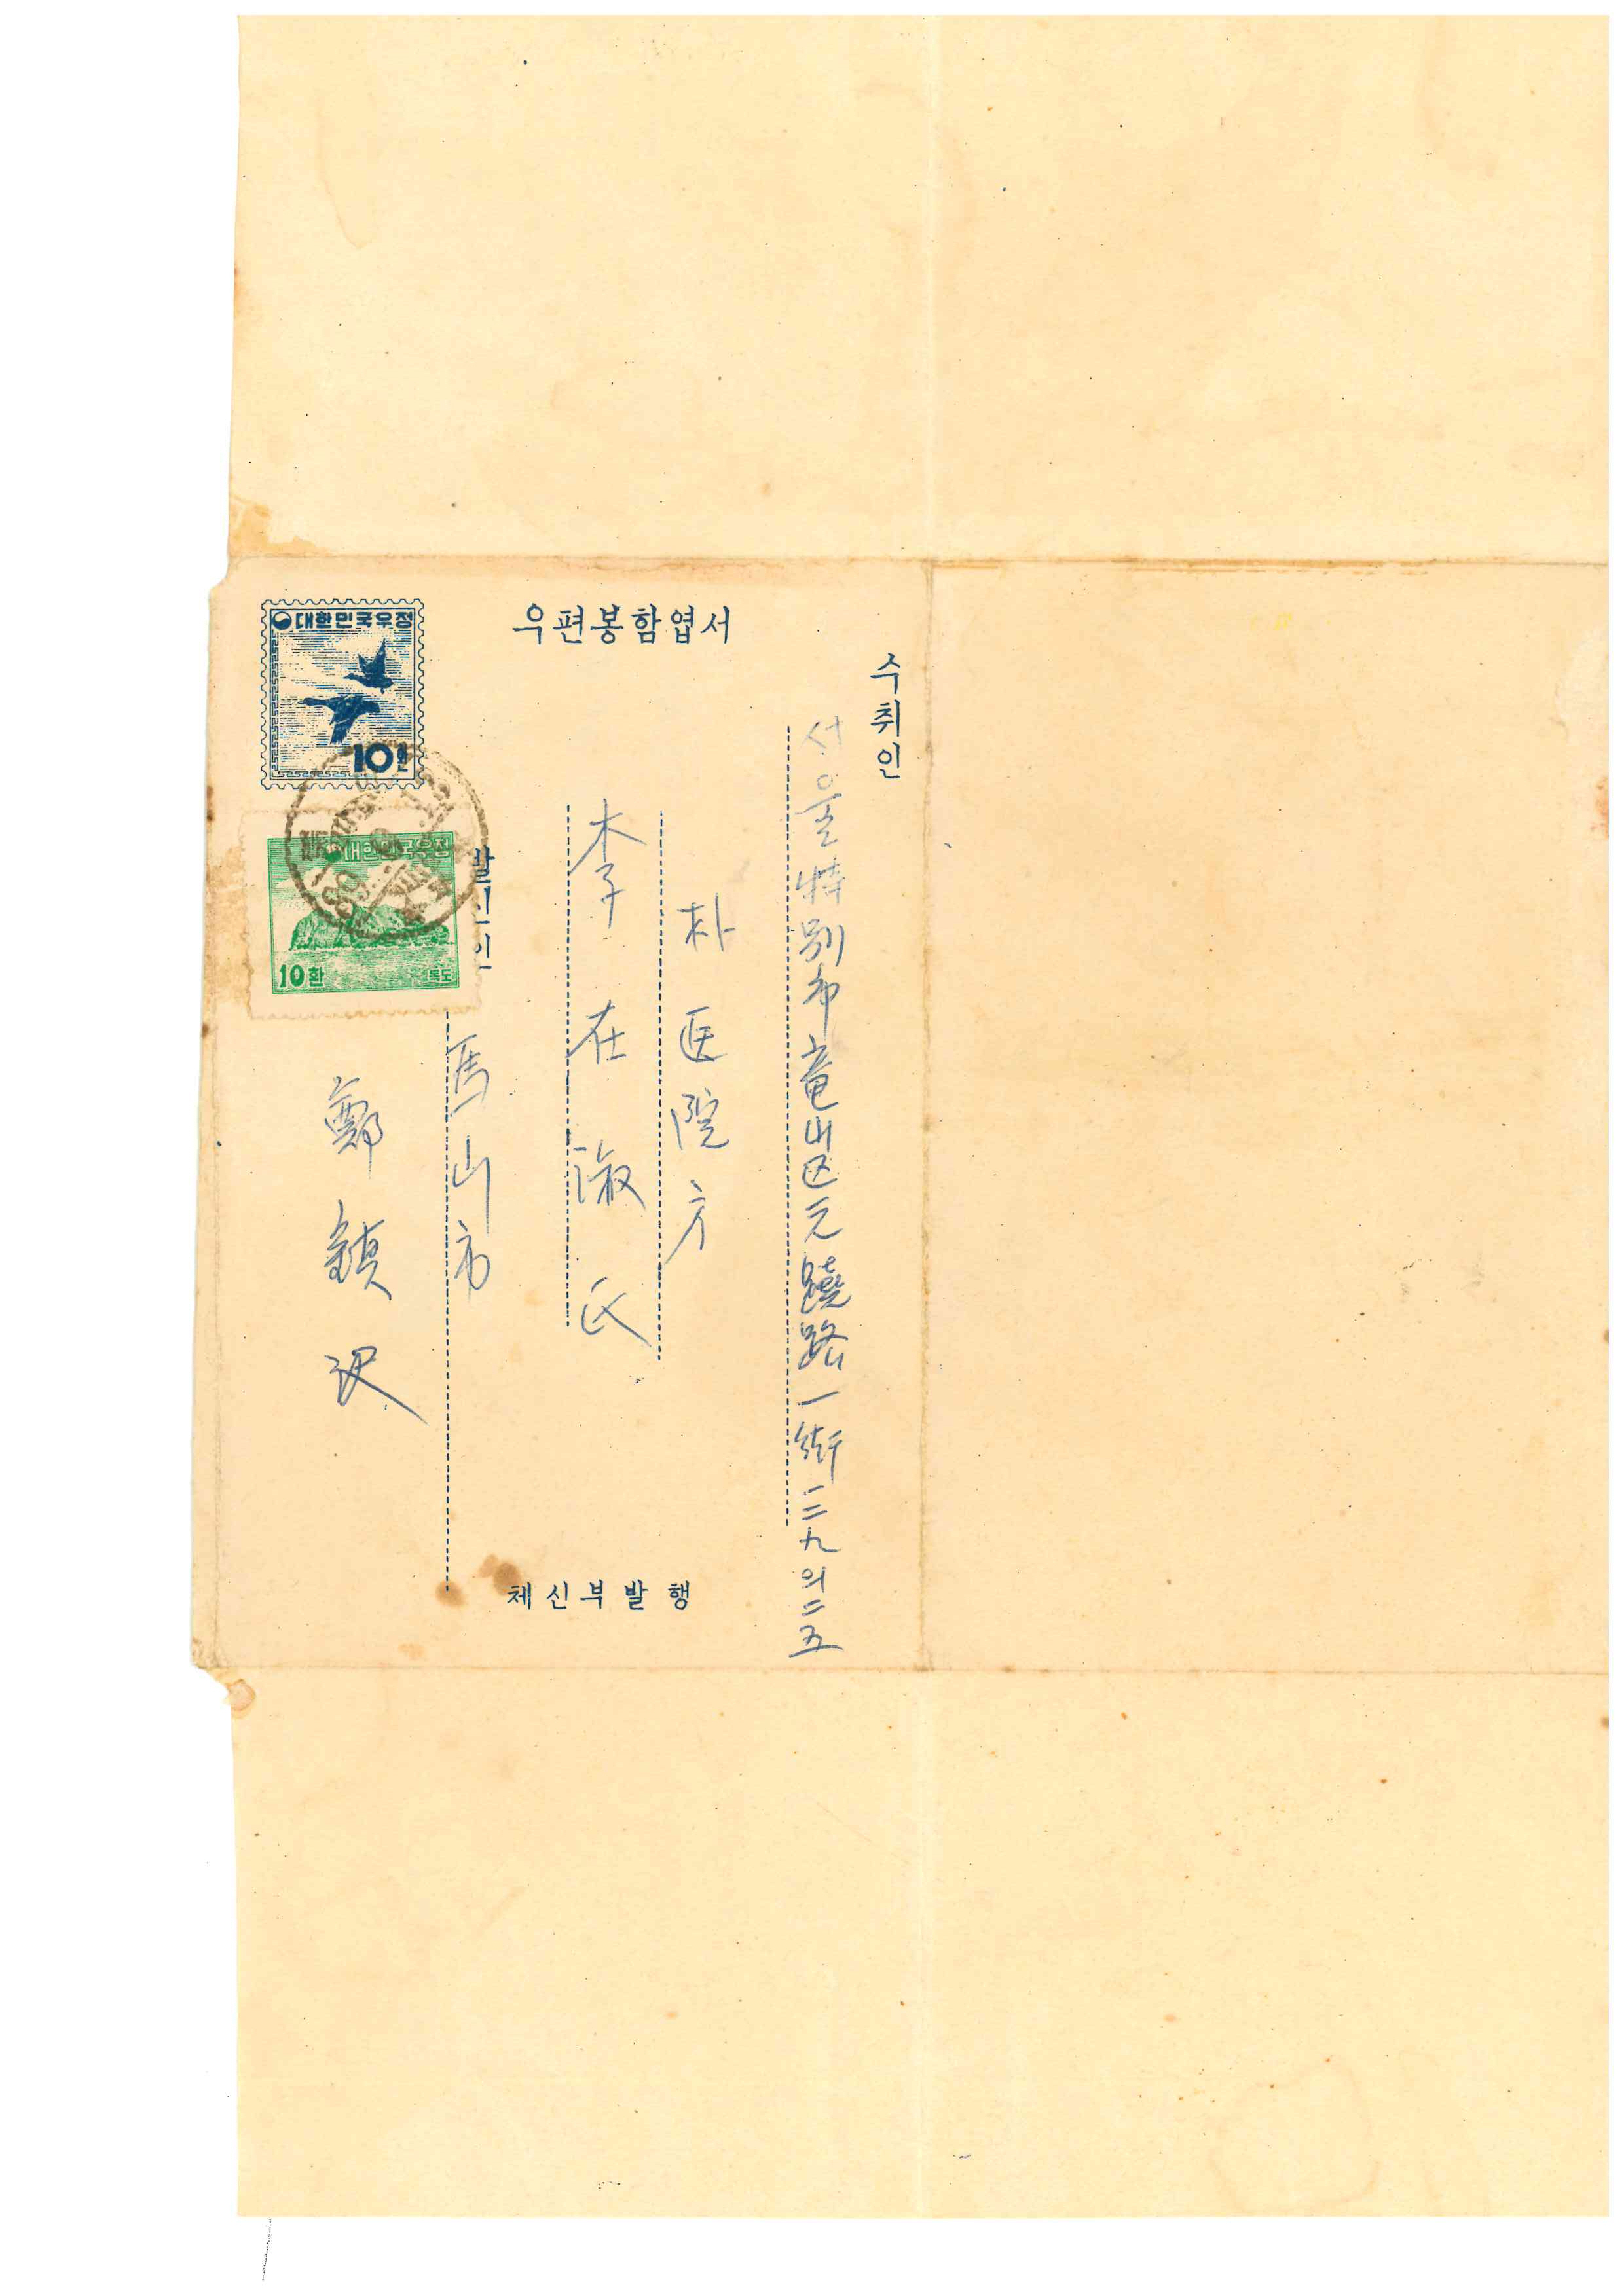 우편봉함엽서
수취인
서울特別市竜山区元曉路一街一二九의二五
朴医院方
李在淑氏
발신인
馬山市
鄭鎮沢
대한민국우정
10환
대한민국우정
10환
독도
체신부발행